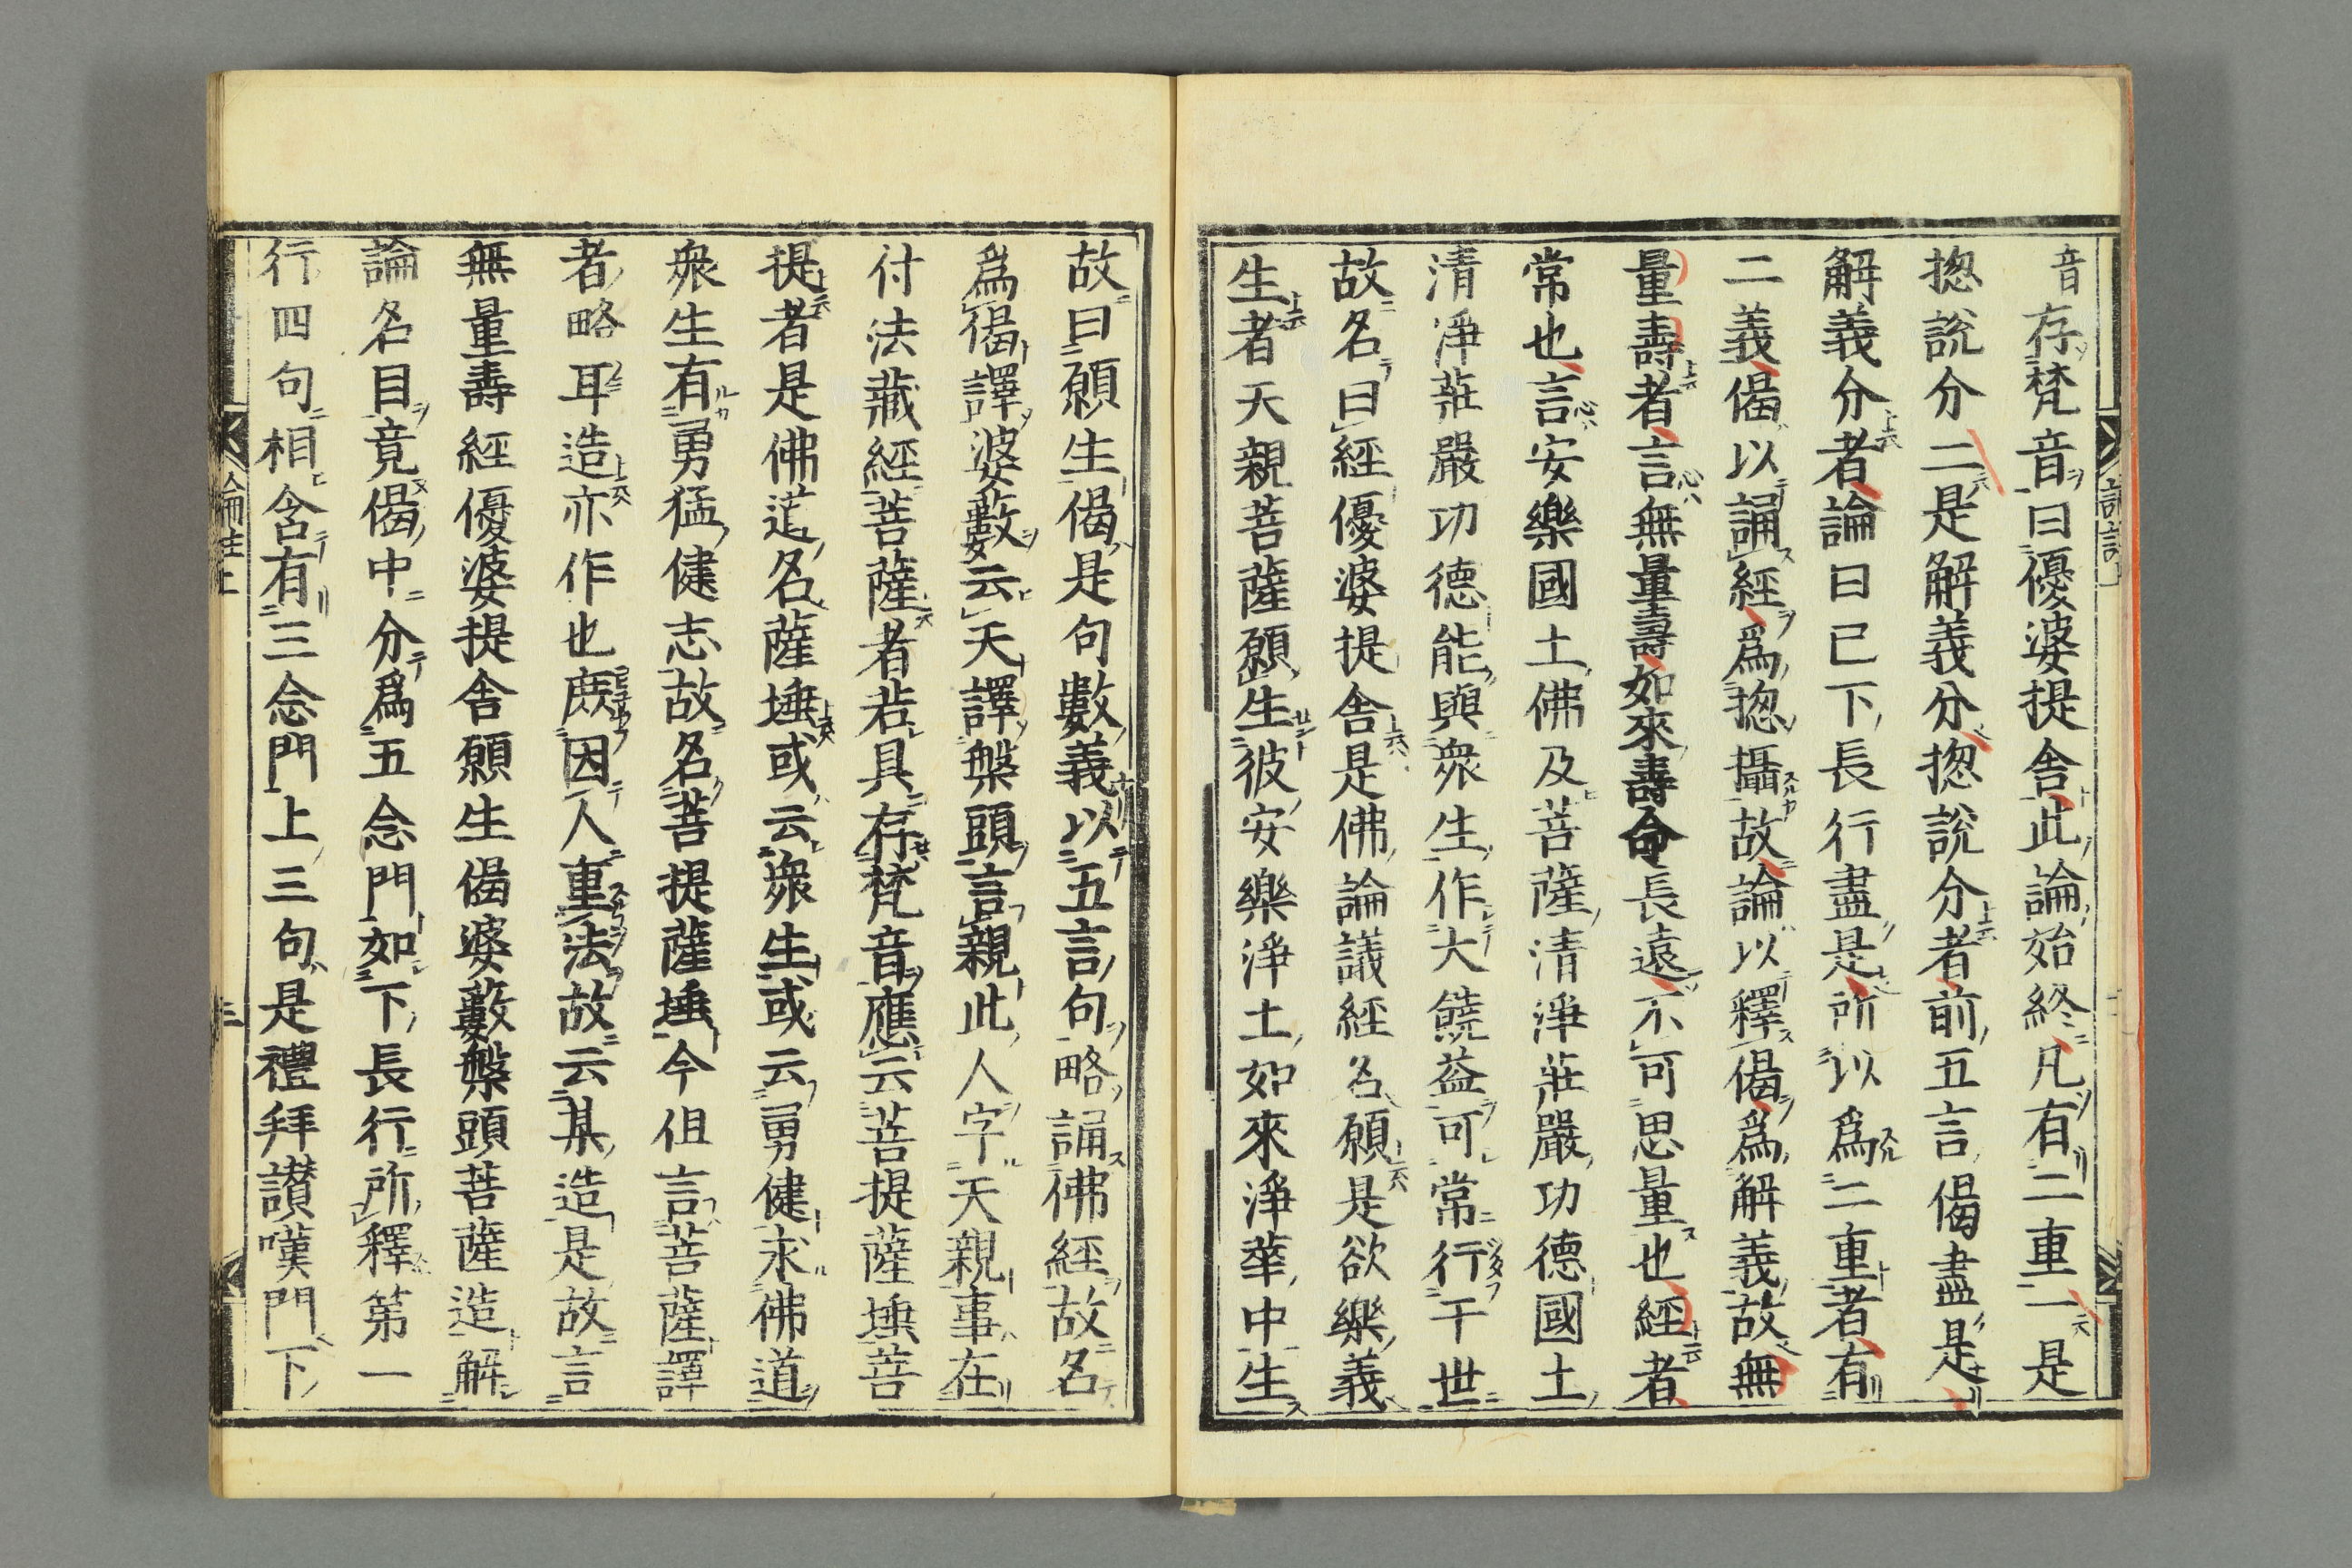 音存梵音曰優婆提舎此論始終凡有二重一是
揔說分二是解義分揔說分者前五言偈盡是
解義分者論曰已下長行盡是所以爲二重者有
二義偈以誦經爲揔攝故論以釋偈爲解義故無
量壽者言無量壽如來壽命長遠不可思量也經者
常也言安樂國土佛及菩薩清淨莊嚴功德國土
清淨莊嚴功德能與衆生作大饒益可常行干世
故名曰經優婆提舎是佛論議經名願是欲樂義
生者天親菩薩願生彼安樂淨土如來淨華中生
故曰願生偈是句數義以五言句略誦佛經故名
爲偈譯婆藪云天譯槃頭言親此人字天親事在
付法藏經菩薩者若具存梵音應云菩提薩埵菩
提者是佛道名薩埵或云衆生或云勇健求佛道
衆生有勇猛健志故名菩提薩埵今但言菩薩譯
者略耳造亦作也庶因人重法故云某造是故言
無量壽經優婆提舎願生偈婆藪槃頭菩薩造解
論名目竟偈中分爲五念門如下長行所釋第一
行四句相含有三念門上三句是禮拜讃嘆門下
論註上